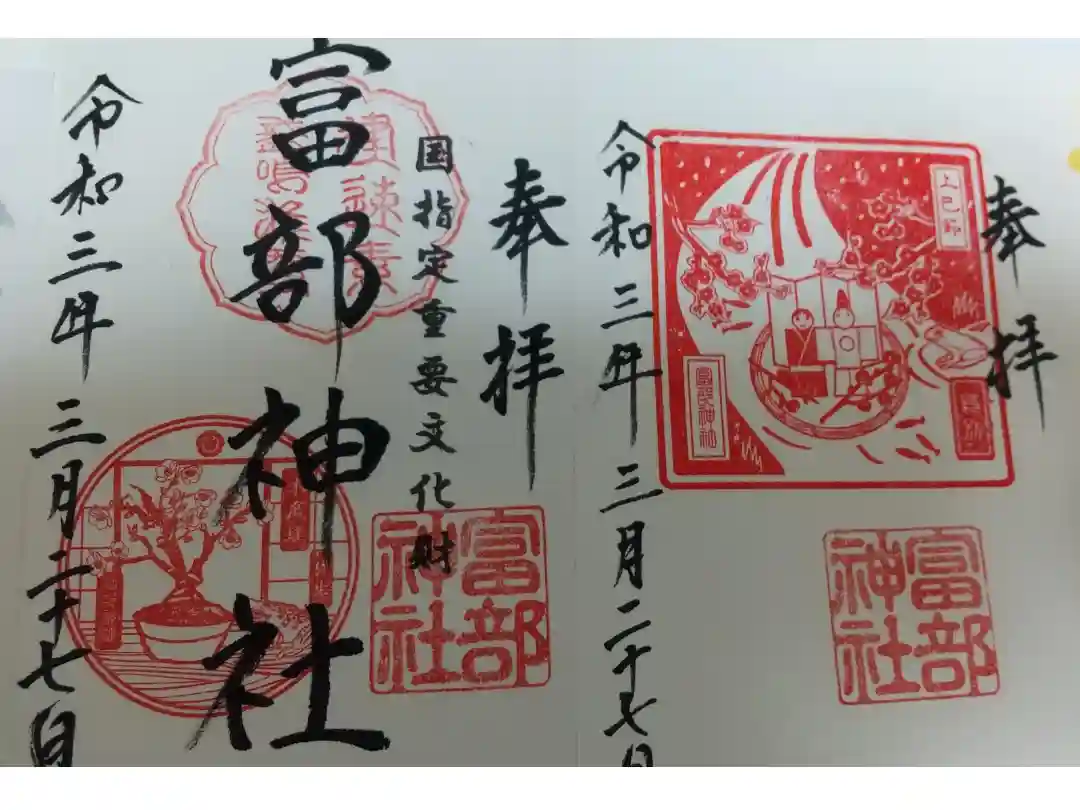 奉拝
上巳節
富部神社
富部神社
令和三年三月二十七日
奉拝
国指定重要文化財
富部神社
富部神社
令和三年三月二十七日